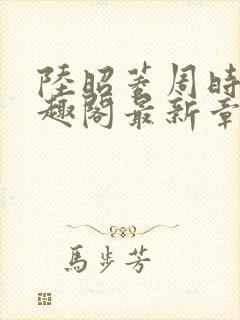 陸昭菱周時
趣閣最新章
馬步芳